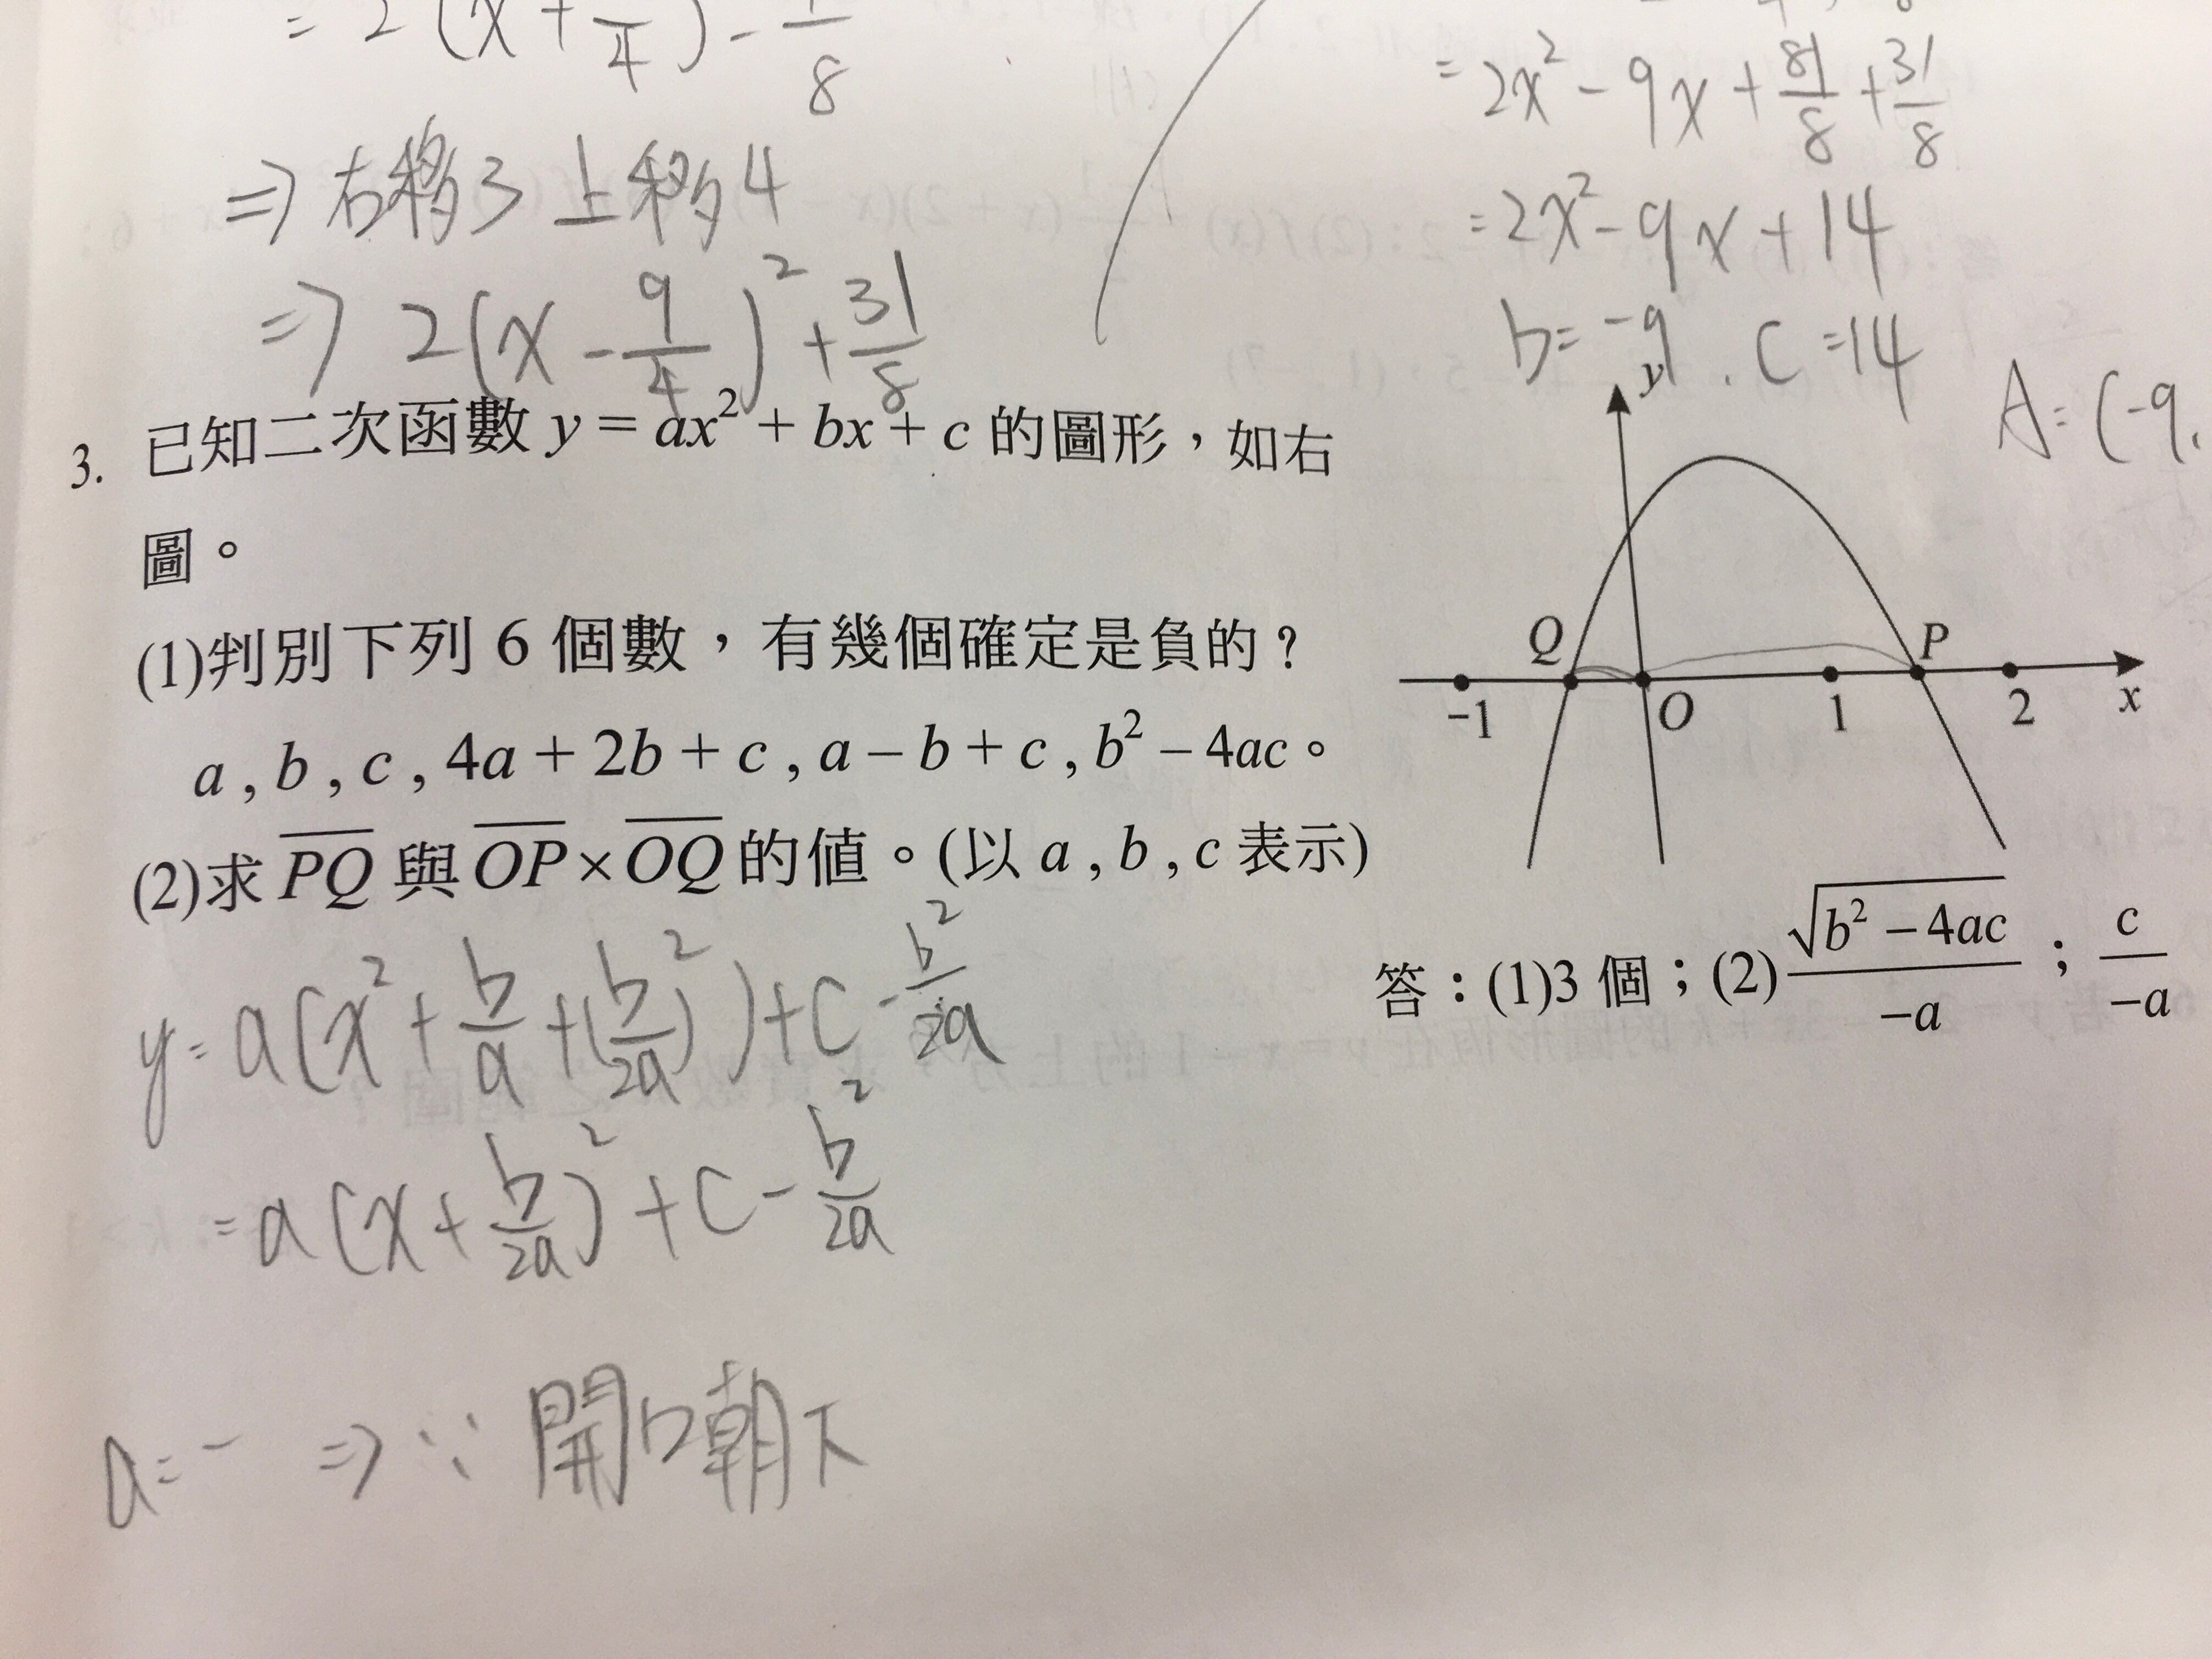 = 2(x + —/4) - —/8
⇒ 右移3 上移4
⇒ 2(x - 9/4)² + 31/8
= 2x² - 9x + 81/8 + 31/8
= 2x² - 9x + 14
b = -9 . c = 14
A = (-9,
3. 已知二次函數 y = ax² + bx + c 的圖形，如右
圖。
(1)判別下列 6 個數，有幾個確定是負的？
a , b , c , 4a + 2b + c , a − b + c , b² − 4ac。
(2)求 PQ 與 OP × OQ 的值。(以 a , b , c 表示)
y
Q
P
-1
O
1
2
x
答：(1)3 個；(2) √(b² − 4ac)/−a ； c/−a
y = a(x² + b/a + (b/2a)²) + c - b²/2a
= a(x + b/2a)² + c - b²/2a
a = - ⇒ ∵ 開口朝下